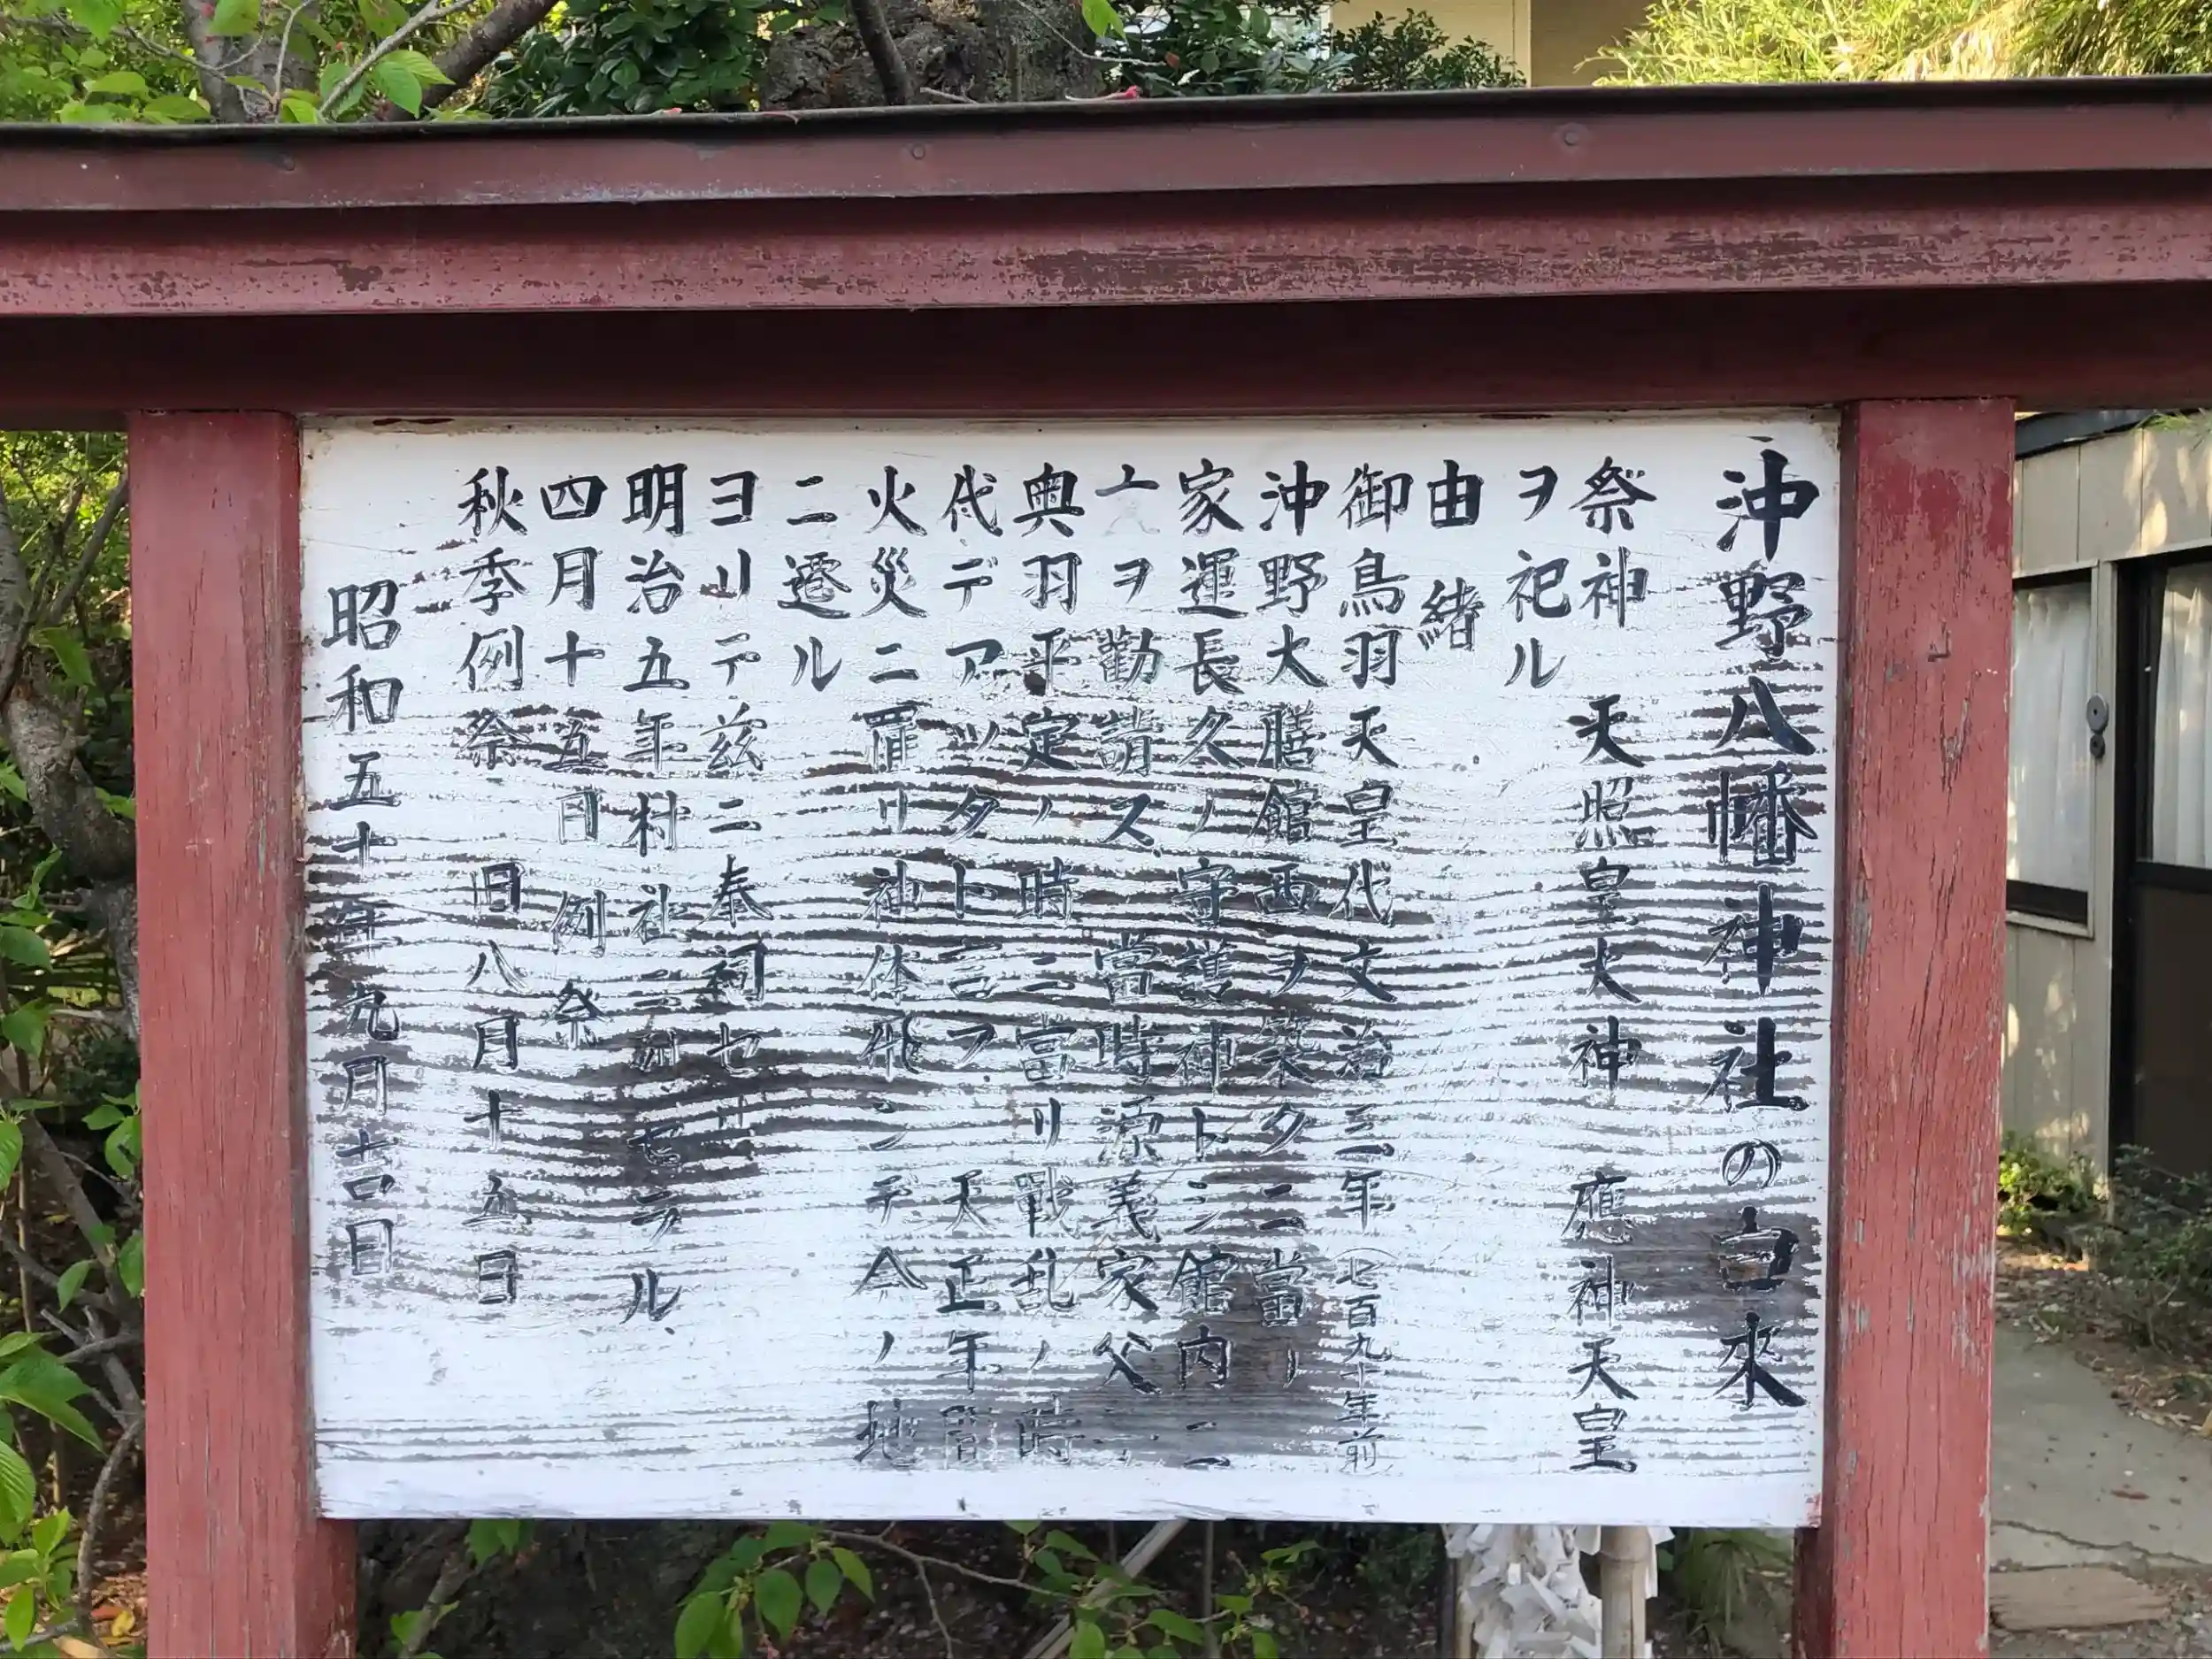 沖野八幡神社の由来
祭神 天照皇大神 應神天皇
ヲ祀ル
由緒
御鳥羽天皇代文治三年（七百九十年前
沖野大膳館西ヲ築クニ當リ
家運長久ノ守護神トシ館内ニ
ヲ勸請ス、當時源義家父
奥羽平定ノ時ニ當リ戰乱ノ時
代デアツタト言フ、天正年間
火災ニ罹リ神体飛ンデ今ノ地
ニ遷ル
ヨリテ茲ニ奉祠セリ
明治五年村社ニ列セラル、
四月十五日 例祭
秋季例祭 旧八月十五日
昭和五十年九月吉日